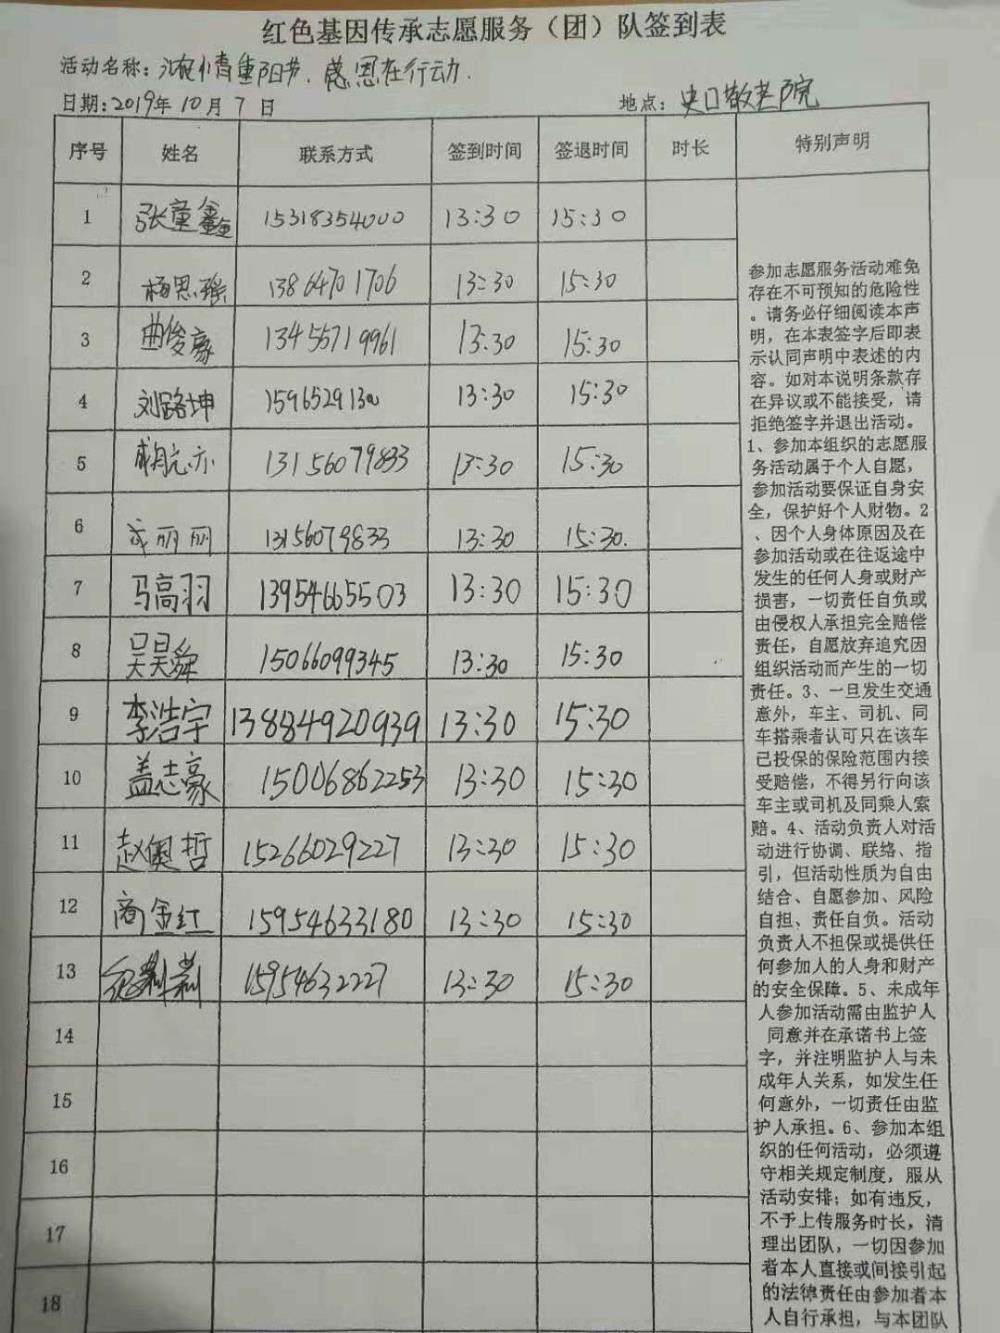 红色基因传承志愿服务（团）队签到表
活动名称：浓情重阳节．感恩在行动．
日期：2019年10月7日 地点：史口敬老院
序号 姓名 联系方式 签到时间 签退时间 时长 特别声明
1 张童鑫 15318354000 13:30 15:30
2 杨思瑶 13864701706 13:30 15:30
3 曲俊豪 13455719961 13:30 15:30
4 刘路坤 1596529130 13:30 15:30
5 13156079833 13:30 15:30
6 成丽丽 13156079833 13:30 15:30.
7 马高羽 13954665503 13:30 15:30
8 吴昊舜 15066099345 13:30 15:30
9 李浩宇 13884920939 13:30 15:30
10 盖志豪 15006862253 13:30 15:30
11 赵奥哲 15266029227 13:30 15:30
12 商金红 15954633180 13:30 15:30
13 15954632227 13:30 15:30
14
15
16
17
18
参加志愿服务活动难免
存在不可预知的危险性
。请务必仔细阅读本声
明，在本表签字后即表
示认同声明中表述的内
容。如对本说明条款存
在异议或不能接受，请
拒绝签字并退出活动。
1、参加本组织的志愿服
务活动属于个人自愿，
参加活动要保证自身安
全，保护好个人财物。2
、因个人身体原因及在
参加活动或在往返途中
发生的任何人身或财产
损害，一切责任自负或
由侵权人承担完全赔偿
责任，自愿放弃追究因
组织活动而产生的一切
责任。3、一旦发生交通
意外，车主、司机、同
车搭乘者认可只在该车
已投保的保险范围内接
受赔偿，不得另行向该
车主或司机及同乘人索
赔。4、活动负责人对活
动进行协调、联络、指
引，但活动性质为自由
结合、自愿参加、风险
自担、责任自负。活动
负责人不担保或提供任
何参加人的人身和财产
的安全保障。5、未成年
人参加活动需由监护人
同意并在承诺书上签
字，并注明监护人与未
成年人关系，如发生任
何意外，一切责任由监
护人承担。6、参加本组
织的任何活动，必须遵
守相关规定制度，服从
活动安排；如有违反，
不予上传服务时长，清
理出团队，一切因参加
者本人直接或间接引起
的法律责任由参加者本
人自行承担，与本团队